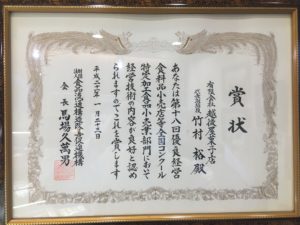 賞状
有限会社 越後屋菓子店
代表取締役
竹村 裕 殿
あなたは第十八回優良経営
食料品小売店等全国コンクール
特定加工食品小売業部門において
経営技術の内容が良好と認め
られますのでこれを賞します
平成二十一年一月二十三日
財団法人食品流通構造改善促進機構
会長 馬場久萬男